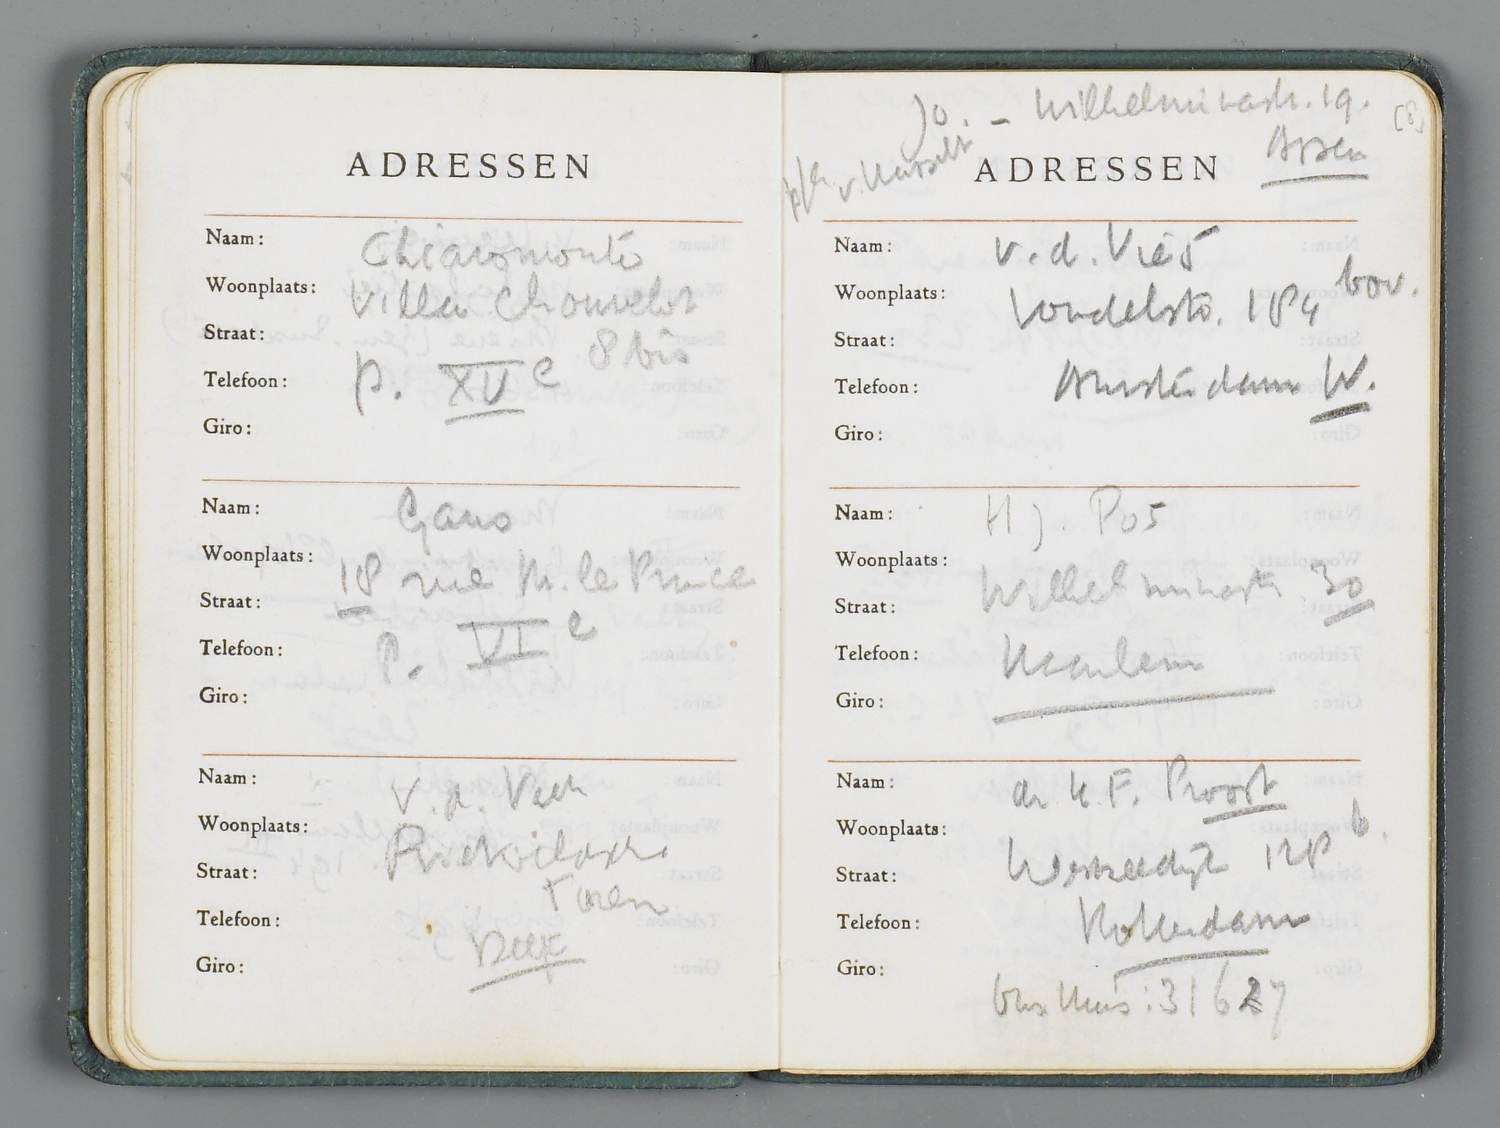 ADRESSEN
Naam: Chiaromonte
Woonplaats: Villa Chauvelot
Straat: 8 bis
Telefoon: P. XVe
Giro:
Naam: Gans
Woonplaats: 18 rue M. le Prince
Straat:
Telefoon: P. VIe
Giro:
Naam: v. d.
Woonplaats:
Straat: Toren
Telefoon:
Giro:
Jo. - Wilhelminastr. 19.
p/a v. Hasselt Assen
ADRESSEN
Naam: v. d. Vies
Woonplaats: Vondelstr. 184 bov.
Straat:
Telefoon: Amsterdam W.
Giro:
Naam: H J. Pos
Woonplaats: Wilhelminastr 30
Straat:
Telefoon: Haarlem
Giro:
Naam: dr K. F. Proost
Woonplaats: b.
Straat: Westzeedijk 128
Telefoon: Rotterdam
Giro:
31627